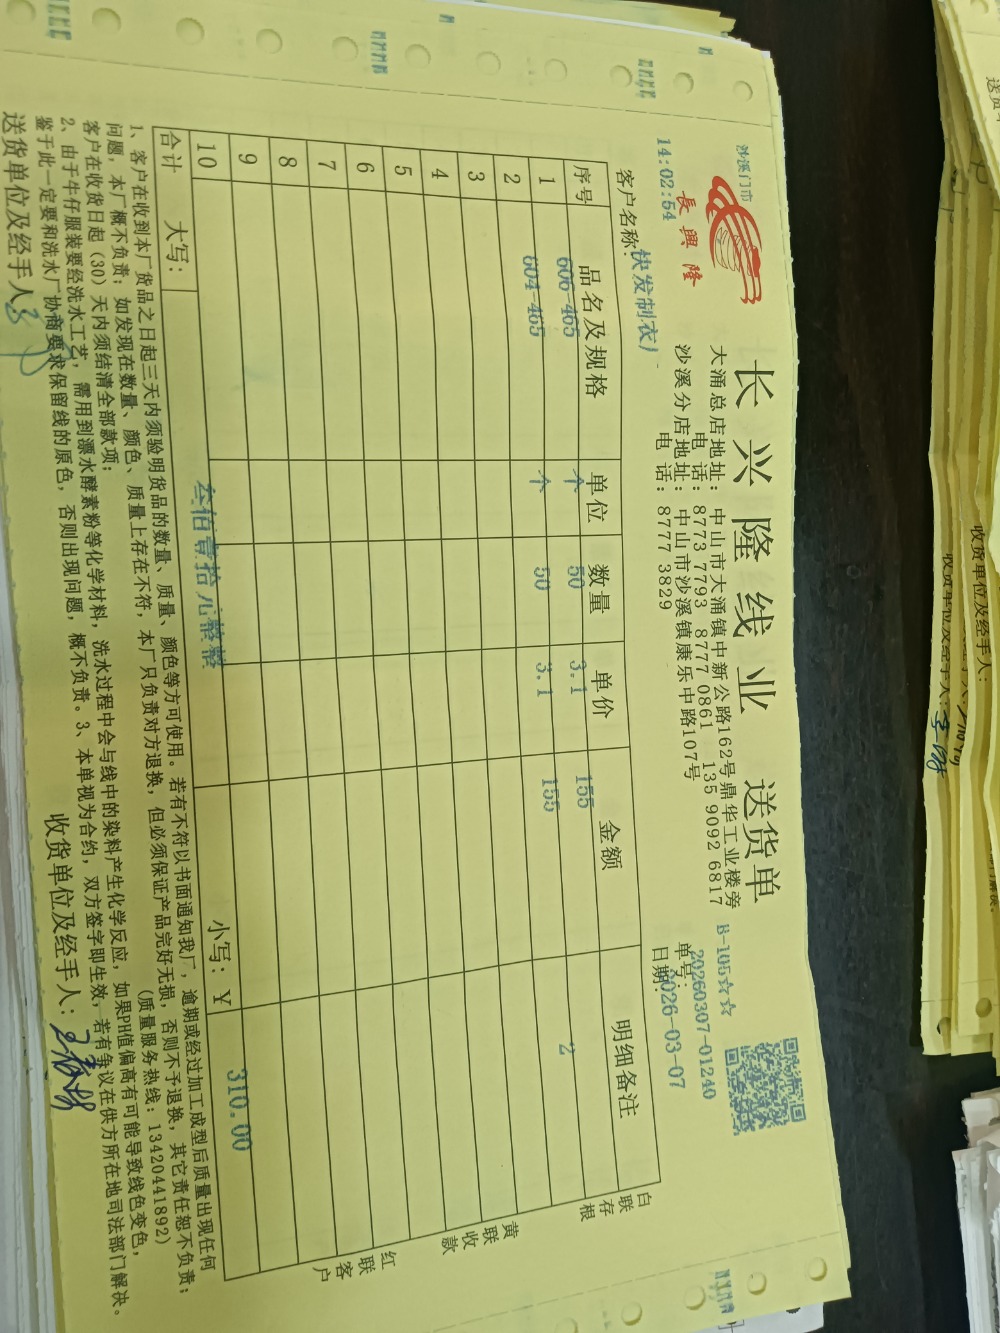 沙溪门市
長興隆
14:02:54
长兴隆线业 送货单
大涌总店地址: 中山市大涌镇中新公路162号鼎华工业楼旁
电 话: 8773 7793 8777 0861 135 9092 6817
沙溪分店地址: 中山市沙溪镇康乐中路107号
电 话: 8777 3829
B-105☆☆
单号: 20260307-01240
日期: 2026-03-07
客户名称: 快发制衣厂
序号 品名及规格 单位 数量 单价 金额 明细备注
1 606-465 个 50 3.1 155 2
2 604-465 个 50 3.1 155
3
4
5
6
7
8
9
10
合计 大写: 叁佰壹拾元整整 小写: ¥ 310.00
白联存根
黄联收款
红联客户
1、客户在收到本厂货品之日起三天内须验明货品的数量、质量、颜色等方可使用。若有不符以书面通知我厂,逾期或经过加工成型后质量出现任何
问题,本厂概不负责;如发现在数量、颜色、质量上存在不符,本厂只负责对方退换,但必须保证产品完好无损,否则不予退换,其它责任恕不负责;
客户在收货日起(30)天内须结清全部款项; (质量服务热线:13420441892)
2、由于牛仔服装要经洗水工艺,需用到漂水酵素粉等化学材料,洗水过程中会与线中的染料产生化学反应,如果PH值偏高有可能导致线色变色,
鉴于此一定要和洗水厂协商要求保留线的原色,否则出现问题,概不负责。3、本单视为合约,双方签字即生效,若有争议在供方所在地司法部门解决。
送货单位及经手人:
收货单位及经手人:
收货单位及经手人:
收货单位及经手人: